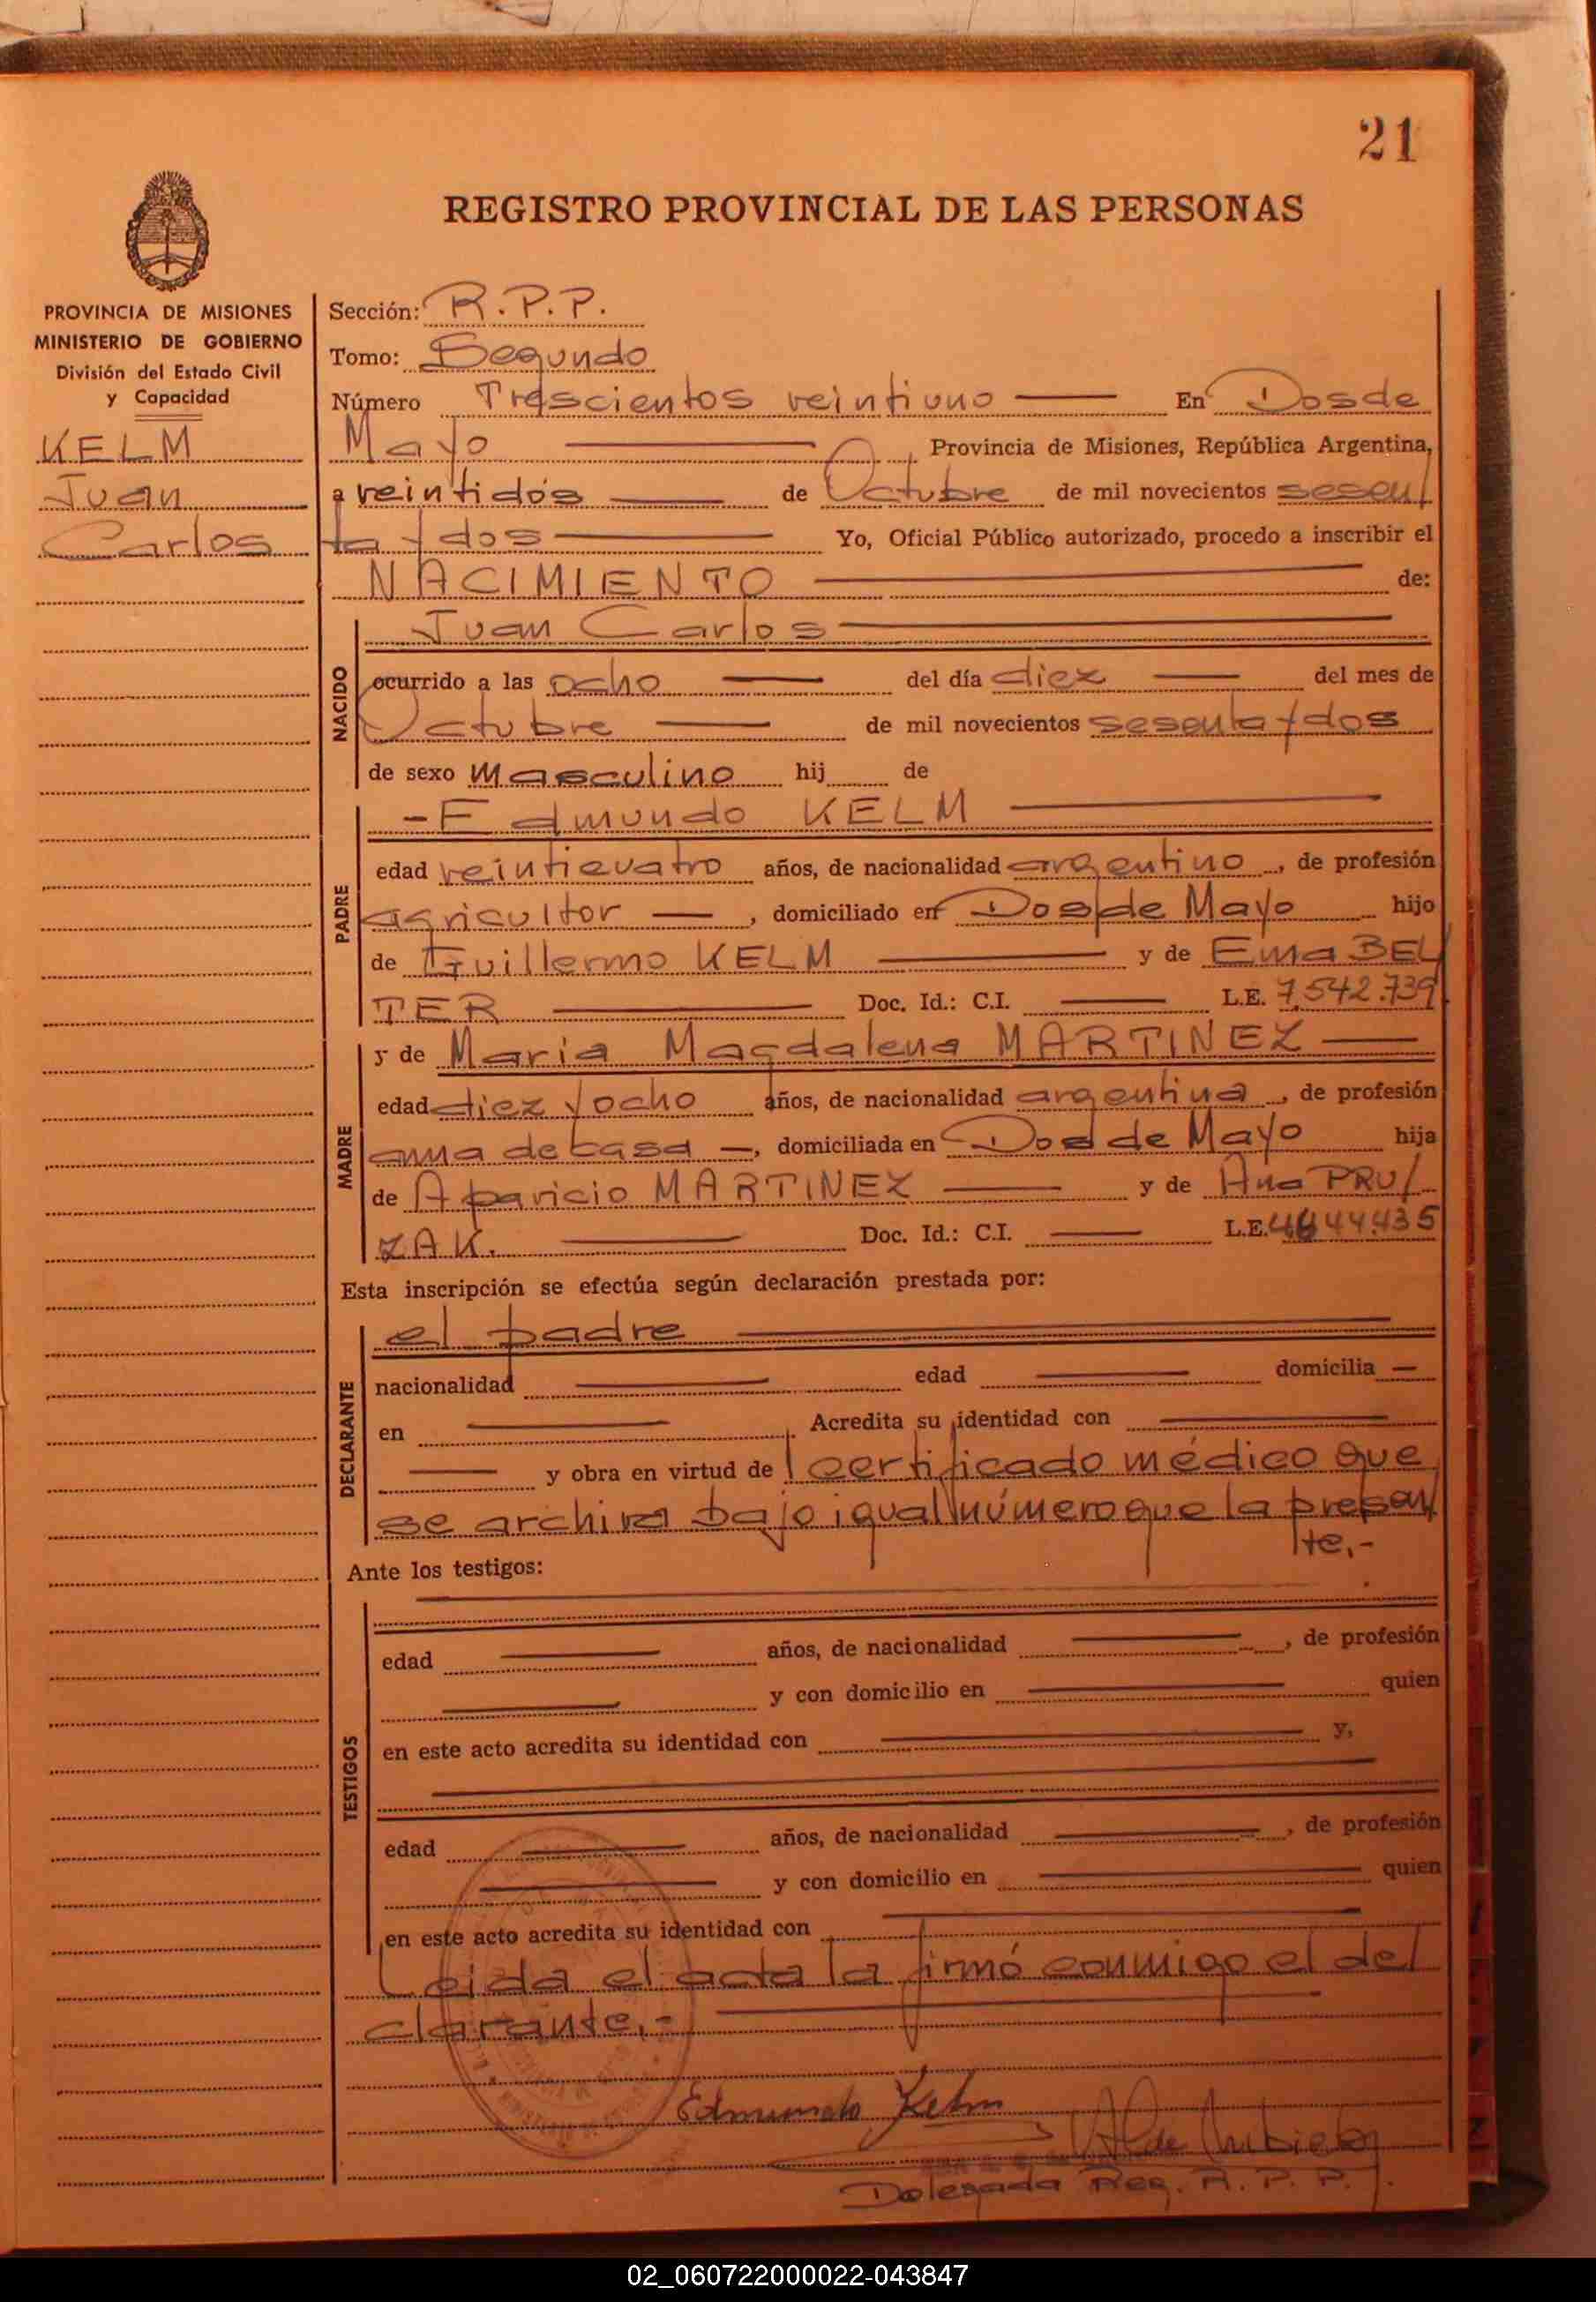 21
REGISTRO PROVINCIAL DE LAS PERSONAS
PROVINCIA DE MISIONES
MINISTERIO DE GOBIERNO
División del Estado Civil
y Capacidad
KELM
Juan
Carlos
Sección: R.P.P.
Tomo: Segundo
Número Trescientos veintiuno En Dos de
Mayo Provincia de Misiones, República Argentina,
a veintidós de Octubre de mil novecientos sesen/
ta y dos Yo, Oficial Público autorizado, procedo a inscribir el
NACIMIENTO de:
NACIDO
Juan Carlos
ocurrido a las ocho del día diez del mes de
Octubre de mil novecientos sesenta y dos
de sexo masculino hij de
PADRE
-Edmundo KELM
edad veinticuatro años, de nacionalidad argentino, de profesión
agricultor, domiciliado en Dos de Mayo hijo
de Guillermo KELM y de Ema BEL/
TER Doc. Id.: C.I. L.E. 7.542.739
MADRE
y de Maria Magdalena MARTINEZ
edad diez y ocho años, de nacionalidad argentina, de profesión
ama de casa, domiciliada en Dos de Mayo hija
de Aparicio MARTINEZ y de Ana PRU/
ZAK. Doc. Id.: C.I. L.E. 4.644.435
Esta inscripción se efectúa según declaración prestada por:
DECLARANTE
el padre
nacionalidad edad domicilia
en Acredita su identidad con
y obra en virtud de certificado médico que
se archiva bajo igual número que la presen/
te,-
Ante los testigos:
TESTIGOS
edad años, de nacionalidad , de profesión
y con domicilio en quien
en este acto acredita su identidad con y,
edad años, de nacionalidad , de profesión
y con domicilio en quien
en este acto acredita su identidad con
Leida el acta la firmó conmigo el del
clarante,-
Edmundo Kelm
Delegada Reg. R.P.P.
02_060722000022-043847